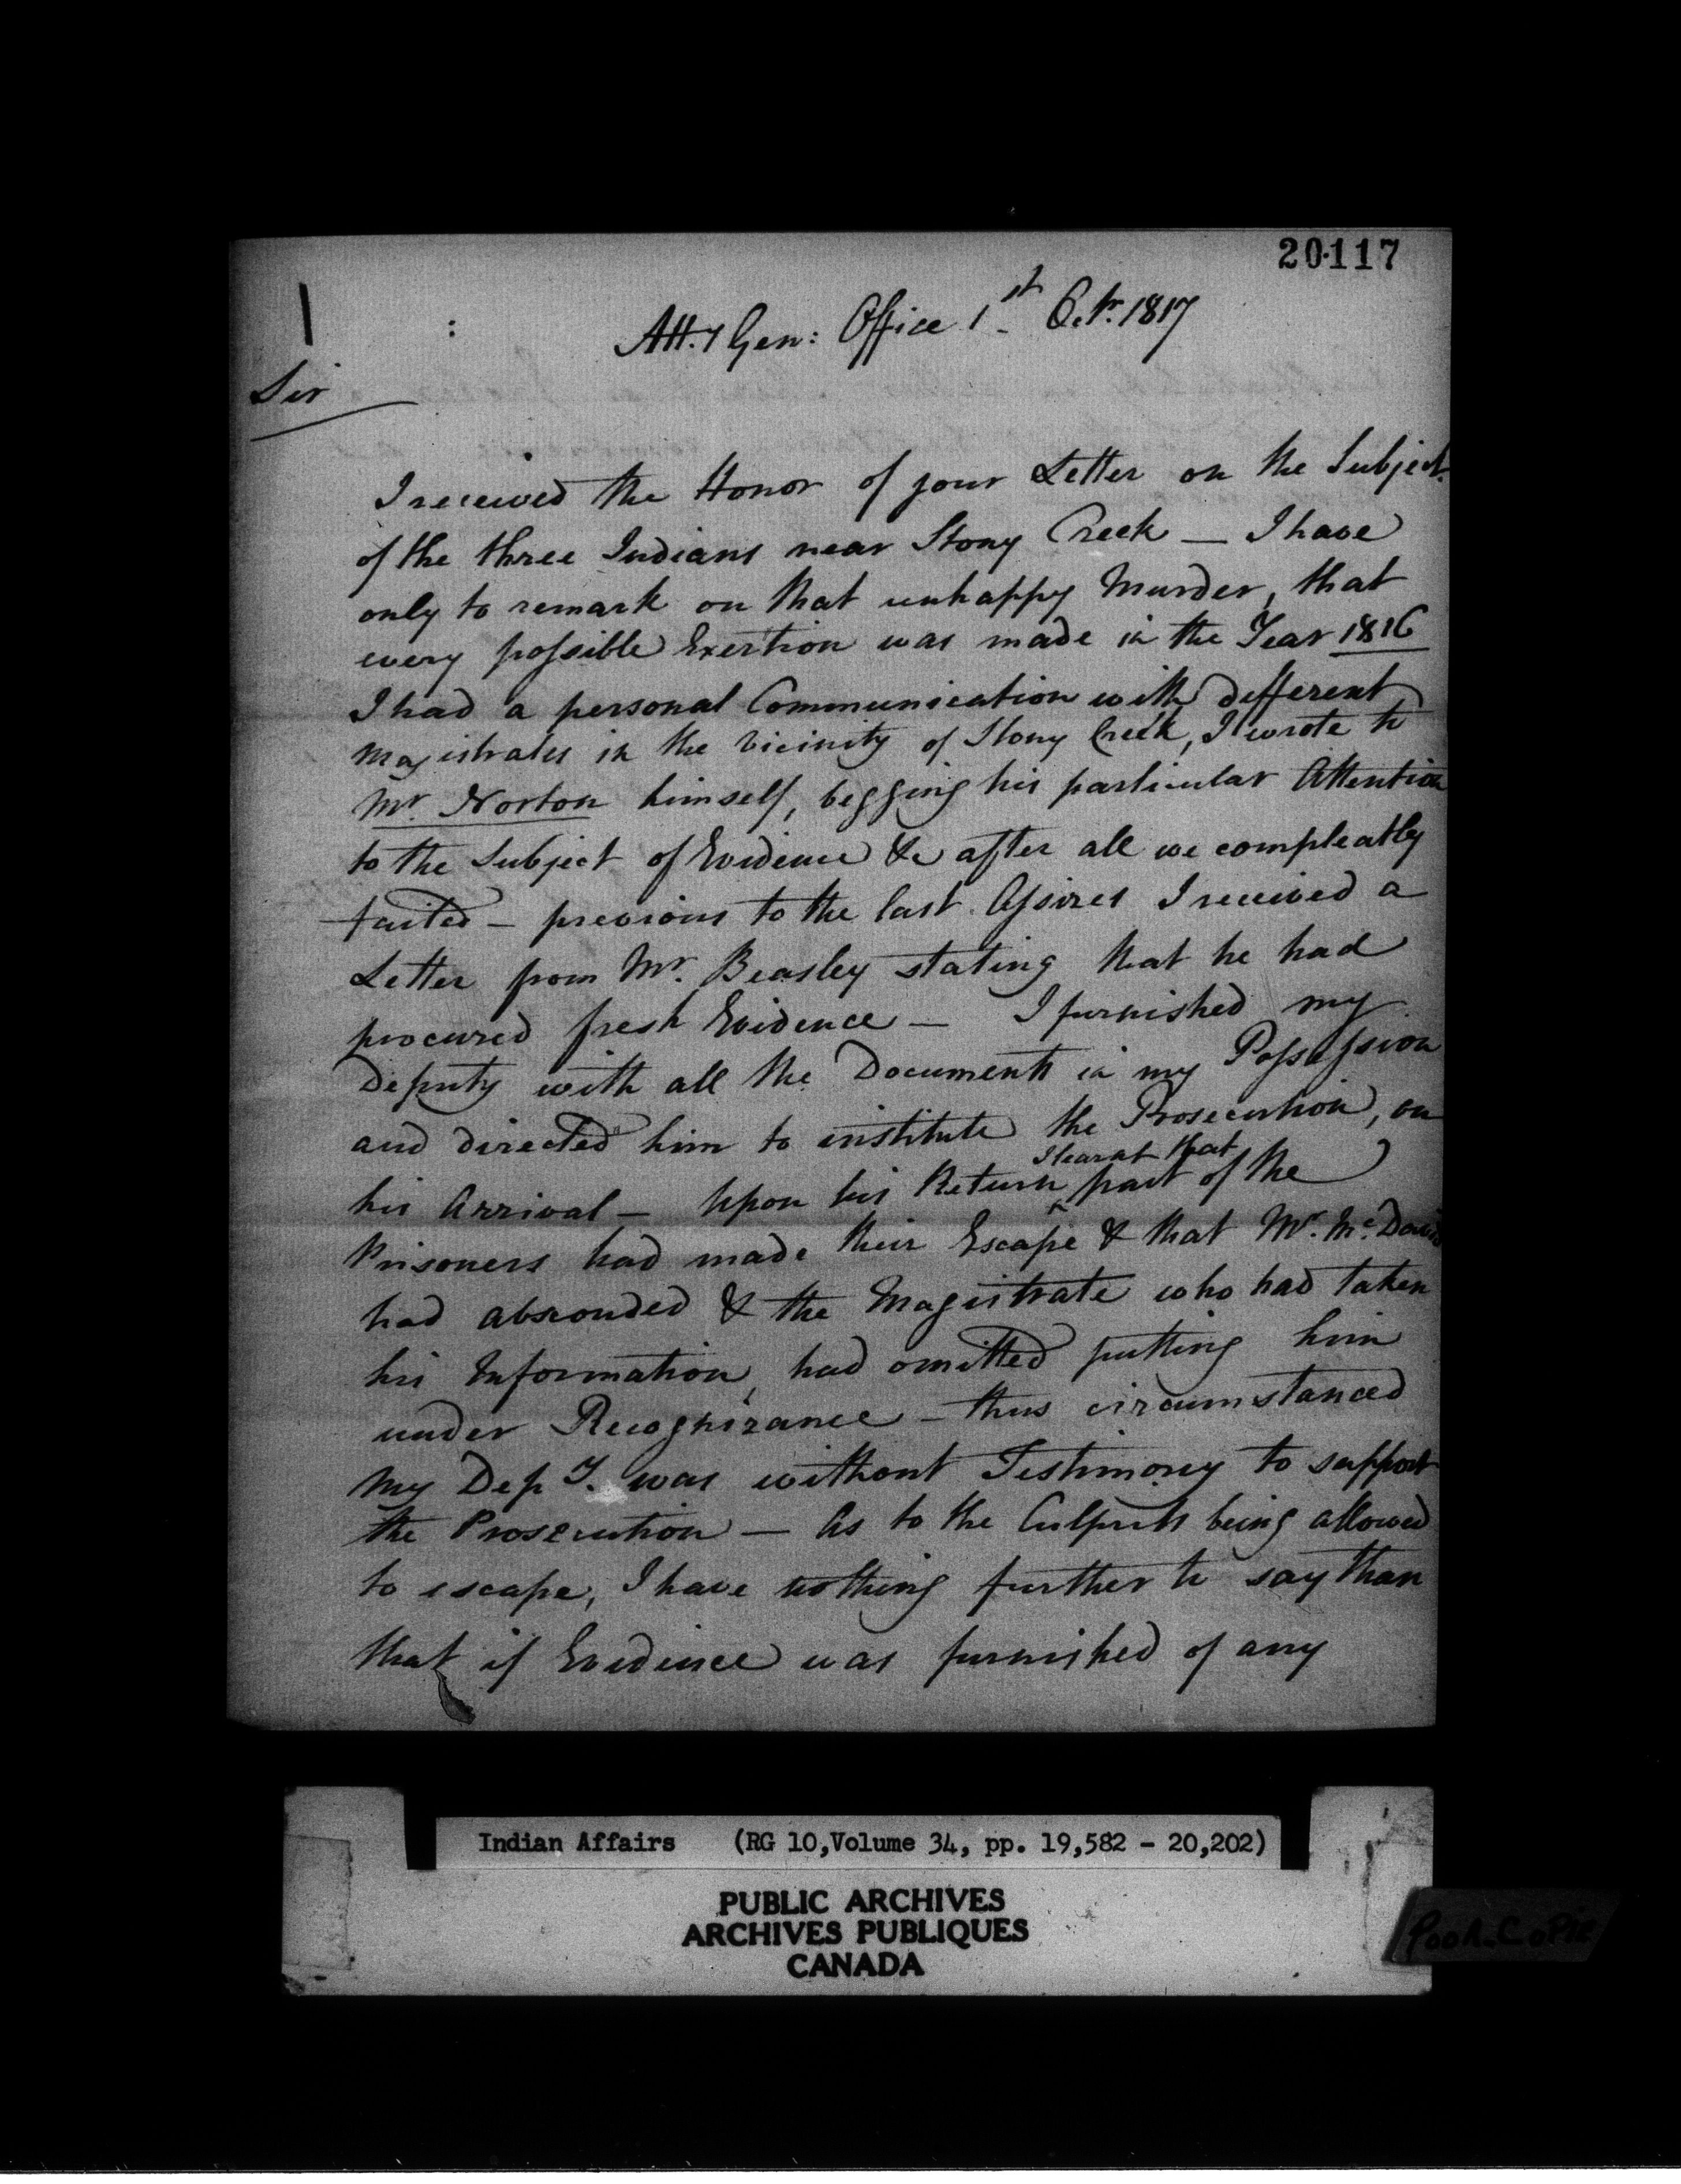 20117
Att.y Gen: Office 1st Octr. 1817
Sir
I received the Honor of your Letter on the Subject
of the three Indians near Stony Creek — I have
only to remark on that unhappy Murder, that
every possible Exertion was made in the Year 1816
I had a personal Communication with different
Magistrates in the vicinity of Stony Creek, I wrote to
Mr. Norton himself, begging his particular Attention
to the Subject of Evidence &c after all we compleatly
failed — previous to the last Assizes I received a
Letter from Mr. Beasley stating that he had
procured fresh Evidence — I furnished my
Deputy with all the Documents in my Possession
and directed him to institute the Prosecution, on
his Arrival — Upon his Return ^ I learnt that part of the
Prisoners had made their Escape & that Mr. Mc. David
had absconded & the Magistrate who had taken
his Information, had omitted putting him
under Recognizance — thus circumstanced
My Dep.y. was without Testimony to support
the Prosecution — As to the Culprits being allowed
to escape, I have nothing further to say than
that if Evidence was furnished of any
Indian Affairs (RG 10, Volume 34, pp. 19,582 - 20,202)
PUBLIC ARCHIVES
ARCHIVES PUBLIQUES
CANADA
Poor Copie